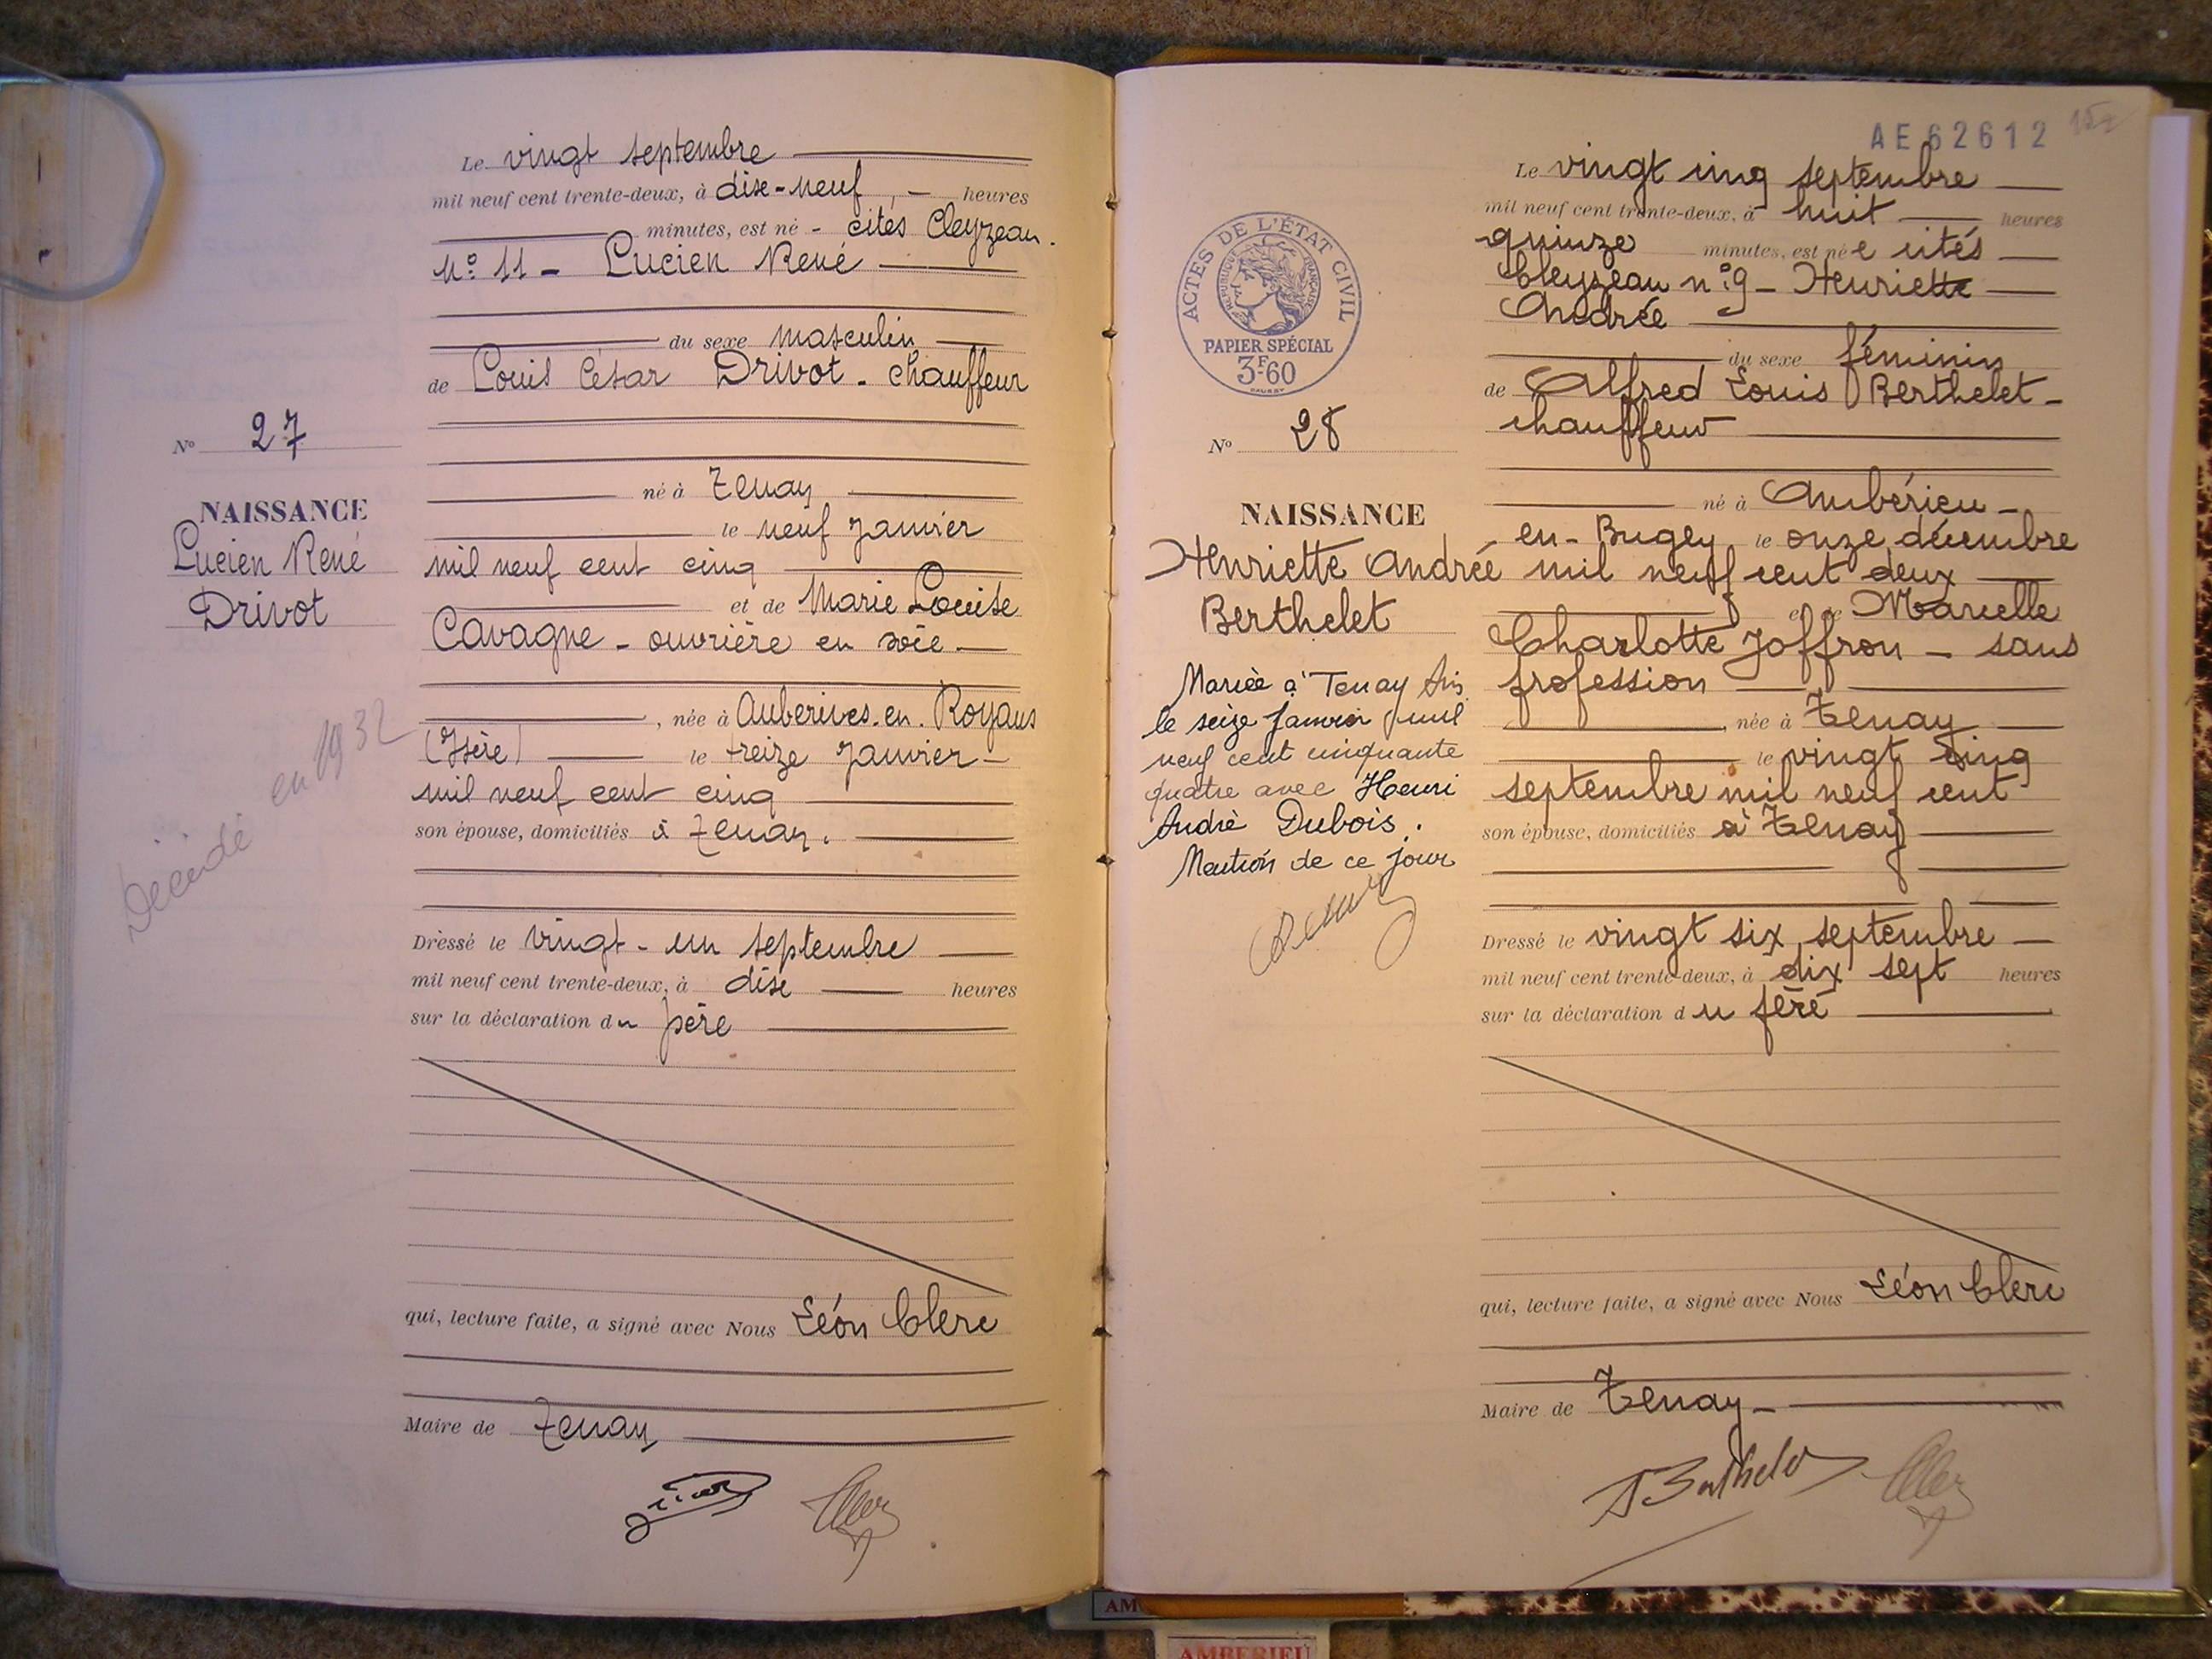 Le vingt septembre
mil neuf cent trente-deux, à dise-neuf, heures
minutes, est né - cités Cleyzeau.
N° 11 - Lucien René
du sexe masculin
de Louis César Drivot - chauffeur
N° 27
né à Tenay
NAISSANCE
le neuf Janvier
Lucien René
mil neuf cent cinq
Drivot
et de Marie Louise
Cavagne - ouvrière en soie
, née à Auberives-en-Royans
(Isère) le treize Janvier
mil neuf cent cinq
son épouse, domiciliés à Tenay.
Décédé en 1932
Dressé le vingt-un septembre
mil neuf cent trente-deux, à dise heures
sur la déclaration du père
qui, lecture faite, a signé avec Nous Léon Clerc
Maire de Tenay
AE62612
Le vingt cinq septembre
mil neuf cent trente-deux, à huit heures
quinze minutes, est née cités
Cleyzeau n° 9 - Henriette
Andrée
ACTES DE L'ÉTAT CIVIL
RÉPUBLIQUE FRANÇAISE
PAPIER SPÉCIAL
3F60
du sexe féminin
de Alfred Louis Berthelet -
chauffeur
N° 28
né à Ambérieu -
NAISSANCE
en-Bugey le onze décembre
Henriette Andrée
mil neuf cent deux
Berthelet
et de Marcelle
Charlotte Joffron - sans
profession
Mariée à Tenay Ain
le seize Janvier mil
neuf cent cinquante
quatre avec Henri
André Dubois.
Mention de ce jour
, née à Tenay
le vingt cinq
septembre mil neuf cent
son épouse, domiciliés à Tenay
Dressé le vingt six septembre
mil neuf cent trente-deux, à dix sept heures
sur la déclaration du père
qui, lecture faite, a signé avec Nous Léon Clerc
Maire de Tenay
ABerthelet
AM
AMBERIEU